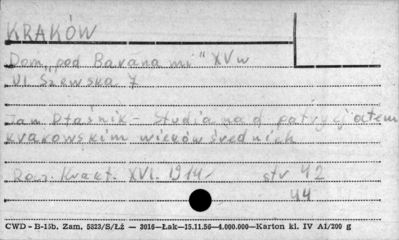 KRAKÓW
Dom „pod Baranami" XV w
Ul Szewska 7
Jan Ptaśnik - Studia nad patrycjatem
krakowskim wieków średnich
Rocz. Krak. XVI. 1914 str 42
44
CWD - B-15b. Zam. 5823/S/Łź — 3016—Łak—15.11.50—4.000.000—Karton kl. IV A1/200 g